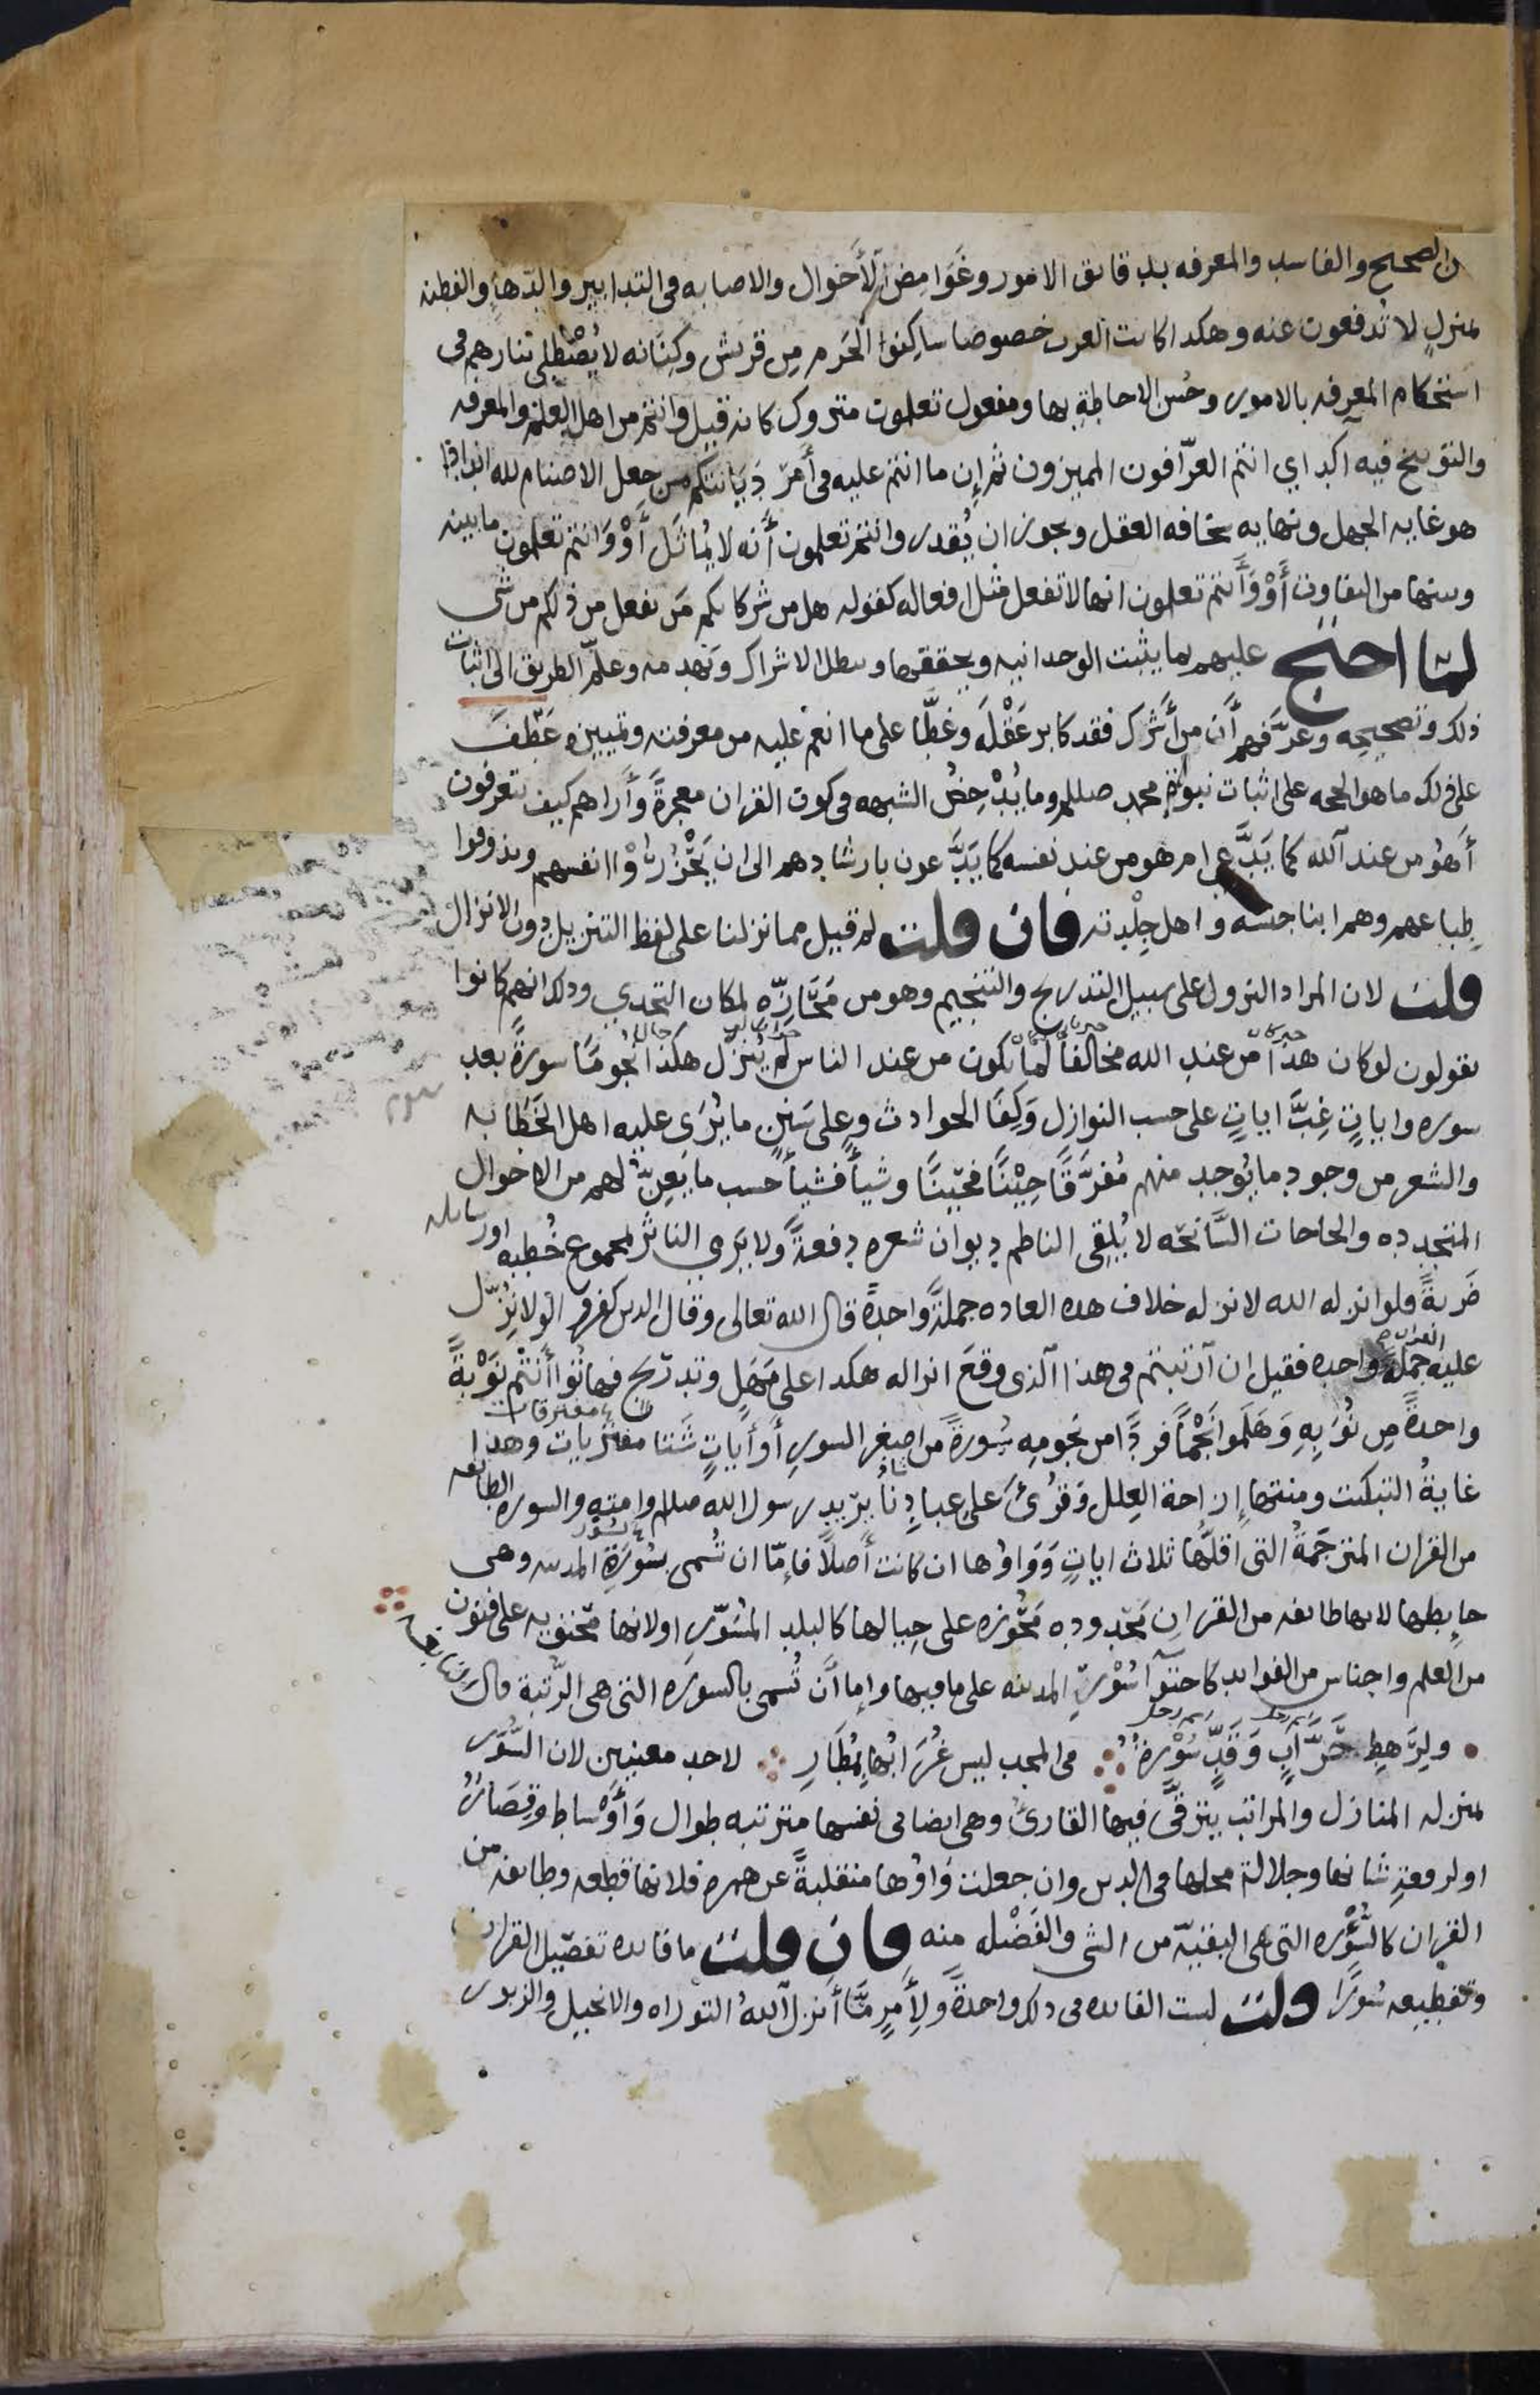 ن الصحيح والفاسد والمعرفه بدقايق الامور وغَوَامِض الأَحْوال والاصابه فى التدابير والدّهاءِ والفطنه
بمنزلٍ لا تُدفعون عنه وهكدا كانت العرب خصوصا ساكِنوا الحَرم مِن قريش وكِنَانه لا يُصْطلى بنارهم فى
استحكام المعرفه بالامور وحُسْن الاحاطةِ بها ومفعول تعلمون متروك كانه قيل وانتم من اهل العلم والمعرفه
والتوبيخ فيه آكد اي انتم العرّافون المميزون ثم إن ما انتم عليه فى أَمرّ دَيَانتكم من جعل الاصنام لله اندادا
هو غايه الجهل ونهايه سخافه العقل ويجوز ان يُقدر وانتم تعلمون أنه لا يُماثَل أَوْ وَانتم تعلمون ما بينه
وبينها من التفاوت أَوْ وَأَنتم تعلمون انها لا تفعل مثل افعاله كقوله هل من شركايكم مَن يفعل من ذلكم من شى
لمّا احتج عليهم بما يثبت الوحدانيه ويحققها ويبطل الاشراك ويهدمه وعلّم الطريق الى اثبات
ذلك وتصحيحِه وعرَّفهم أَن من أَشرك فقد كابر عَقْلَه وغطَّا على ما انعم عليه من معرفته وتمييزه عَطَفَ
على ذلك ما هو الحجه على اثبات نبوّة محمد صللم وما يُدْحِضُ الشبهه فى كون القران معجزةً وأَراهم كيف تتعرفون
أَهُو من عند الله كما يَدَّعى ام هو من عند نفسه كما يَدَّعون بارشادهم الى ان يَحْزُرُوْا انفسهم ويذوقوا
طِباعهم وهم ابنا جنسه واهل جِلْدته فان قلت لم قيل مما نزلنا على لفظ التنزيل دون الانزال
قلت لان المراد النزول على سبيل التدريج والتنجيم وهو من مَحَازِّه لمكان التحدي وذلك انهم كانوا
يقولون لو كان هذا من عند الله مخالفاً لما يكون من عند الناس لم يُنزّل هكذا نُجومًا سورةً بعد
سوره واياتٍ غِبَّ اياتٍ على حسب النوازل وَكِفَا الحوادث وعلى سَننِ ما يُرَى عليه اهل الخَطَابه
والشعر من وجود ما يُوجد منهم مُفرَّقًا حِيْنًا فحِينًا وشياً فشياً حسب ما يَعِنّ لهم من الاحوال
المتجدده والحاحات السَّانحَه لا يُلقى الناظم ديوان شعره دفعةً ولا يَرمي الناثر بمجموع خُطبه او رسايله
ضَربةً فلو انزله الله لانزله خلاف هده العاده جملةً واحدةً قال الله تعالى وقال الدين كفروا لولا نزّل
عليه القران جملةً واحده فقيل ان ارتبتم فى هذا الذى وقعَ انزاله هكدا على مَهَلٍ وتدريج فهاتوا أَنتْم نَوْبةً
واحدةً مِن نُوَبِهِ وَهَلَموا نَجْمًا فردًا من نجومه سُورةً من اصغر السور أَو أَياتٍ شَتا مفتريات وهذا
غايةُ التبكيت ومنتهى إزاحة العِلل وَقرُئ على عبادِنا يريد رسول الله صللم وامته والسوره الطايفه
من القران المترجَمةُ التى اقلّها ثلاث اياتٍ وَوَاوُها ان كانت أَصلاً فإمّا ان تُسمى بسُورَةِ المدينه وهى
حايطها لانها طايفه من القران مَحدوده مَحُوزه على حِيالها كالبلد المُسَوّر او لانها مُحتويه على فنون
من العلم واجناس من الفوايد كاحتوآ سُوْرةِ المدينه على ما فيها وإما أَن تُسمى بالسوره التى هى الرُتبة قال النابغه
ولِرَهطِ حَرَّابٍ وَقَدٍّ سُوْرةٌ فى المجد ليس غُرَابُها بِمُطَارِ لاحد معنيين لان السُّوَر
بمنزله المنازل والمراتب يترقَّى فيها القارئ وهى ايضا فى نفسها مترتبه طوال وَأَوْساط وقِصَارٌ
او لرفعةِ شانها وجلالة محلها فى الدين وان جعلت وَاوُها منقلبةً عن همزه فلانها قطعه وطايفه من
القران كالسُّؤْره التى هى البقيّة من الشى والفَضْله منه فان قلت ما فايده تفصيل القران
وتقطيعه سُوَرًا قلت ليست الفايده فى دلك واحدةً ولأَمرٍ مَّا أنزل اللهُ التوراه والانجيل والزبور